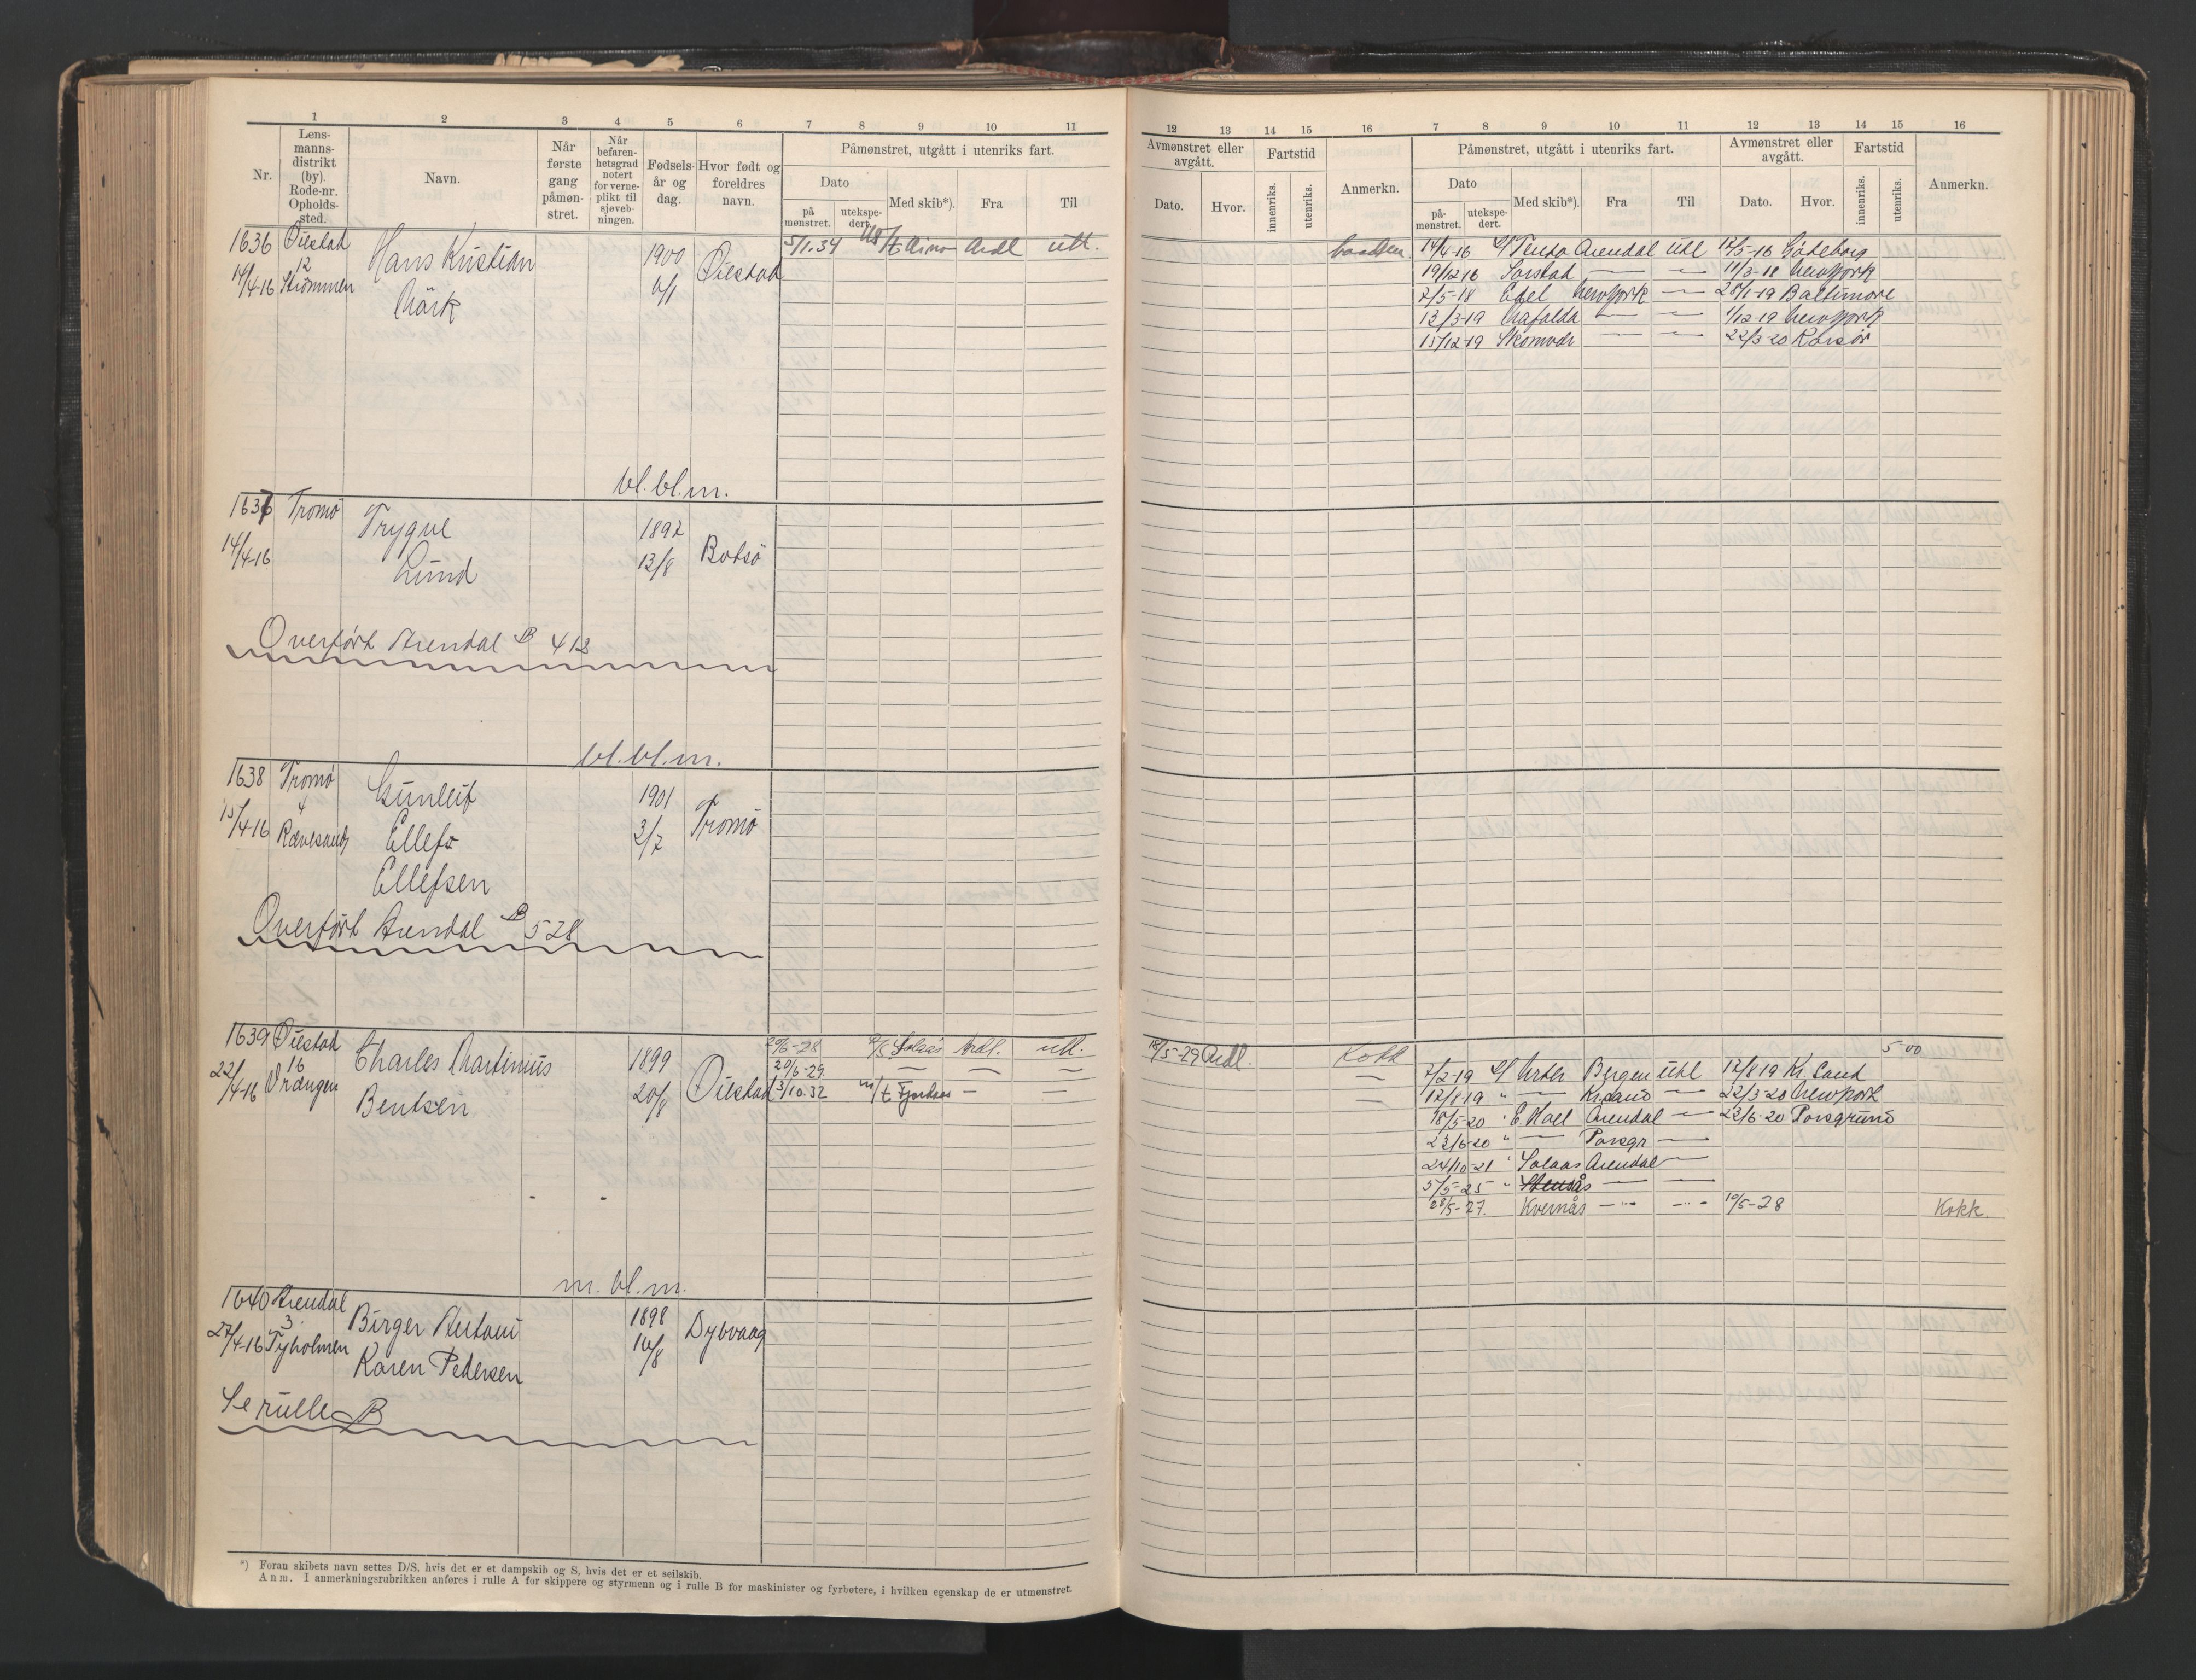 1 2 3 4 5 6 7 8 9 10 11
Nr.
Lens-
manns-
distrikt
(by).
Rode-nr.
Opholds-
sted.
Navn.
Når
første
gang
påmøn-
stret.
Når
befaren-
hetsgrad
notert
for verne-
plikt til
sjøveb-
ningen.
Fødsels-
år og
dag.
Hvor født og
foreldres
navn.
Påmønstret, utgått i utenriks fart.
Dato
på
mønstret.
utekspe-
dert.
Med skib*).
Fra
Til
1636 Øiestad Hans Kristian 1900 Øiestad 5/1.34 M/t Aino Ardl utl.
14/4-16 12 Strømmen Mørk 6/1
bl.bl.m.
1637 Tromø Trygve 1892 Botsø
14/4-16 Lund 13/8
Overført Arendal B 412
bl.bl.m.
1638 Tromø Gunleif 1901 Tromø
15/4-16 4 Ellefs 3/7
Rævesand Ellefsen
Overført Arendal B 528
1639 Øiestad Charles Martinius 1899 Øiestad 20/6-28 D/S Solaas Ardl. utl.
22/4-16 16 Vrængen Bentsen 20/8 20/6-29 — — —
13/10.32 m/t — —
m. bl. m.
1640 Arendal Birger Antoni 1898 Dybvaag
27/4-16 3 Tyholmen Karen Pedersen 16/8
Se rulle B
*) Foran skibets navn settes D/S, hvis det er et dampskib og S, hvis det er et seilskib.
Anm. I anmerkningsrubrikken anføres i rulle A for skippere og styrmenn og i rulle B for maskinister og fyrbøtere, i hvilken egenskap de er utmønstret.
12 13 14 15 16 7 8 9 10 11 12 13 14 15 16
Avmønstret eller
avgått.
Fartstid
Dato.
Hvor.
innenriks.
utenriks.
Anmerkn.
Påmønstret, utgått i utenriks fart.
Dato
på-
mønstret.
utekspe-
dert.
Med skib*).
Fra
Til
Avmønstret eller
avgått.
Dato.
Hvor.
Fartstid
innenriks.
utenriks.
Anmerkn.
14/4-16 Arendal utl 12/5-16 Göteborg
19/12-16 Sørstad — — 11/3-18 New York
7/5-18 Edel New York — 28/1-19 Baltimore
13/3-19 Mafalda — — 1/12-19 New York
15/12-19 — — 22/3-20 Korsør
18/5-29 Ardl. Kokk
5-00
7/2-19 Bergen utl 12/8-19 Kr. Sand
12/8-19 " — Kr.sand — 22/3-20 New York
18/5-20 " Arendal — 23/6-20 Porsgrund
23/6-20 " — Porsgr —
24/10-21 " Solaas Arendal —
5/5-25 " — —
28/5-27. Kvernås — — 10/5-28 Kokk.